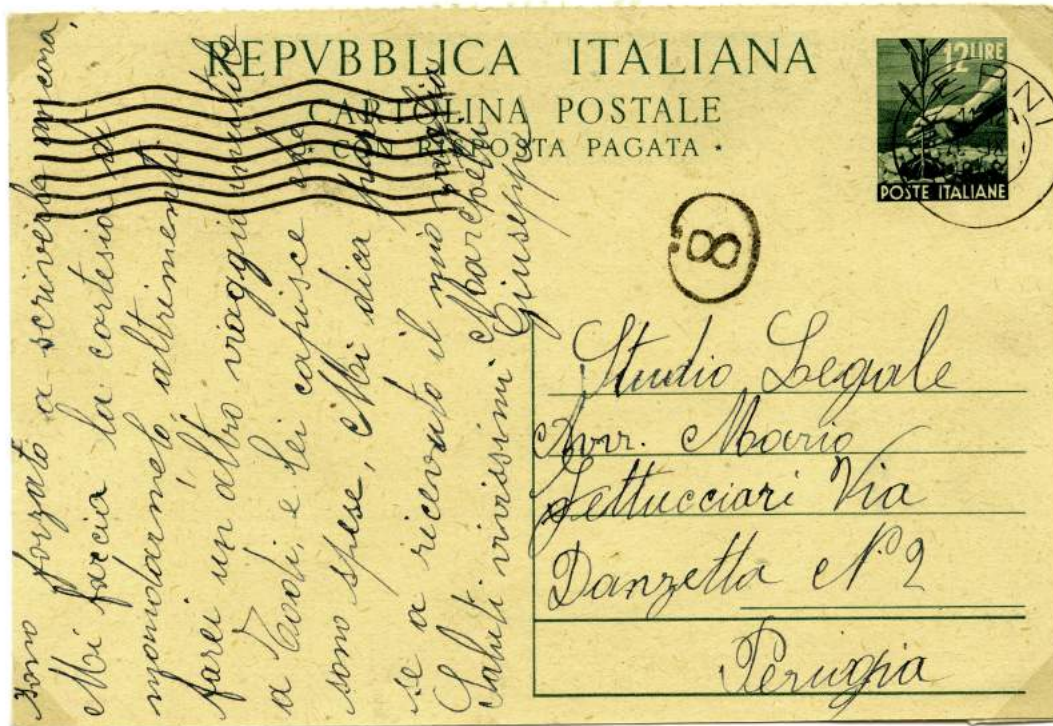 REPVBBLICA ITALIANA
CARTOLINA POSTALE
· CON RISPOSTA PAGATA ·
12 LIRE
POSTE ITALIANE
8
Studio Legale
Avv. Mario
Fettucciari Via
Danzetta N° 2
Perugia
Sono forzato a scriverle ancora,
Mi faccia la cortesia di
mondarmelo, altrimenti
farei un altro viaggio inutile
a Todi, e lei capisce che
sono spese, Mi dica pure
se a ricevuto il mio vaglia
Saluti vivissimi
Giuseppe